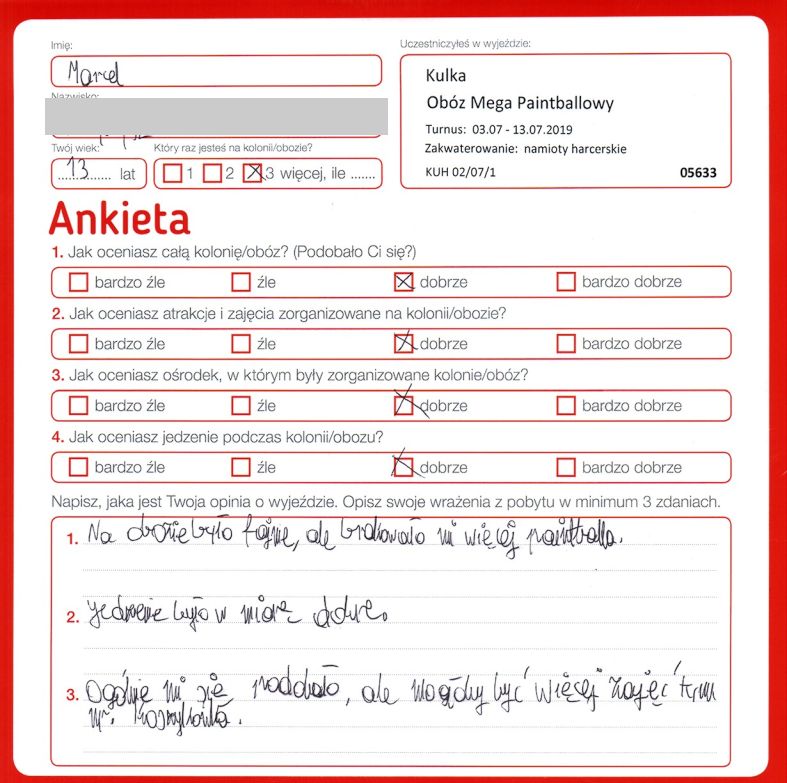 Imię:
Marcel
Uczestniczyłeś w wyjeździe:
Kulka
Obóz Mega Paintballowy
Turnus: 03.07 - 13.07.2019
Zakwaterowanie: namioty harcerskie
KUH 02/07/1 05633
Nazwisko:
Twój wiek: Który raz jesteś na kolonii/obozie?
13 lat 1 2 3 więcej, ile .......
Ankieta
1. Jak oceniasz całą kolonię/obóz? (Podobało Ci się?)
bardzo źle źle dobrze bardzo dobrze
2. Jak oceniasz atrakcje i zajęcia zorganizowane na kolonii/obozie?
bardzo źle źle dobrze bardzo dobrze
3. Jak oceniasz ośrodek, w którym były zorganizowane kolonie/obóz?
bardzo źle źle dobrze bardzo dobrze
4. Jak oceniasz jedzenie podczas kolonii/obozu?
bardzo źle źle dobrze bardzo dobrze
Napisz, jaka jest Twoja opinia o wyjeździe. Opisz swoje wrażenia z pobytu w minimum 3 zdaniach.
1. Na obozie było fajne, ale brakowało mi więcej paintballa.
2. Jedzenie było w miarę dobre.
3. Ogólnie mi się podobało, ale mogłoby być więcej zajęć
np.